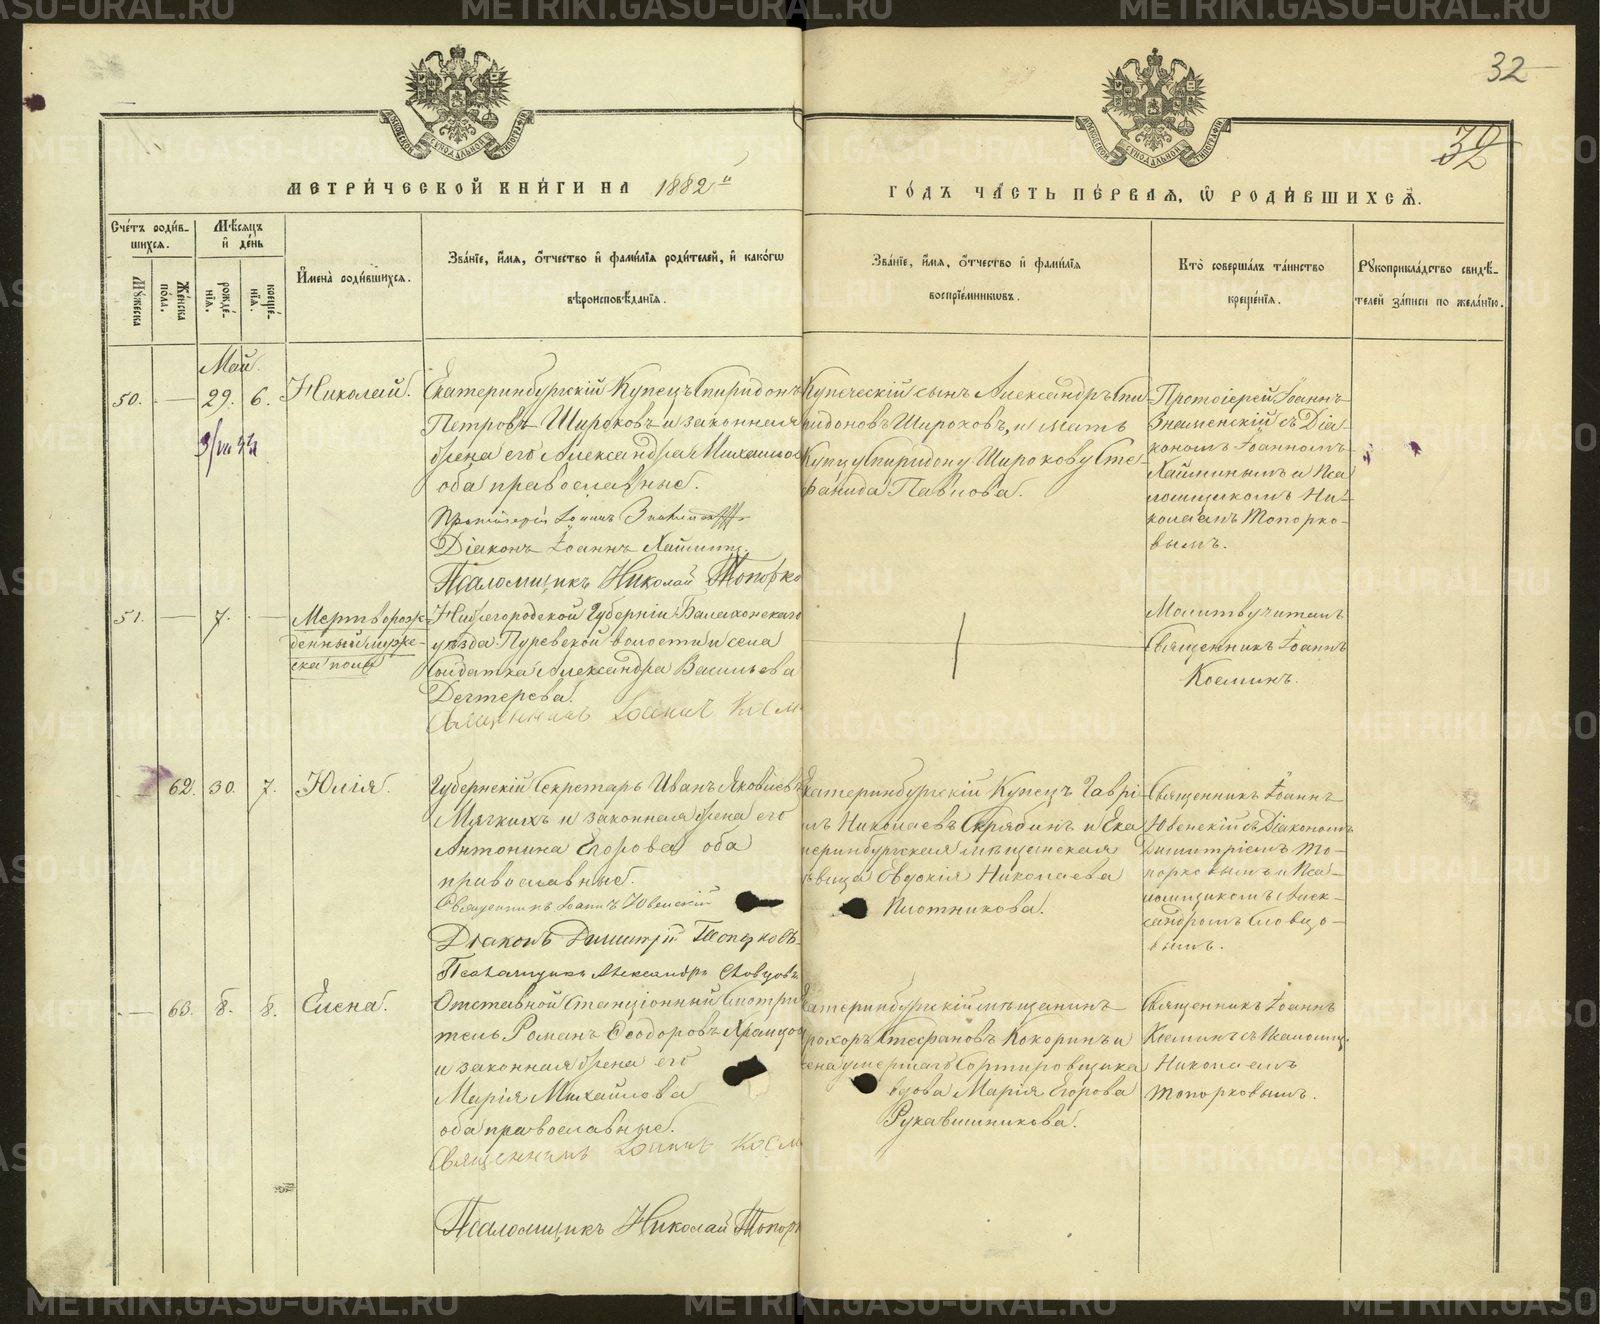 32
32
МЕТРИ́ЧЕСКОЙ КНИ́ГИ НА 1882й
ГО́ДЪ ЧА́СТЬ ПЕ́РВАЯ, Ѡ РОДИ́ВШИХСѦ.
Сче́тъ роди́в-
шихся.
Мѣ́сяцъ
и҆ де́нь
Мꙋ́жеска
Же́нска
по́ла.
рожде́-
нїя.
креще́-
нїя.
И҆мена̀ роди́вшихся.
Зва́нїе, и҆́мя, ѻ҆́тчество и҆ фами́лїя роди́телей, и҆ како́гѡ
вѣроисповѣ́данїя.
Зва́нїе, и҆́мя, ѻ҆́тчество и҆ фами́лїя
воспрїе́мникѡвъ.
Кто̀ соверша́лъ та́инство
креще́нїя.
Рꙋкоприкла́дство свидѣ́-
телей за́писи по жела́нїю.
Май.
50. — 29. 6. Николай.
Екатеринбургскій Купецъ Спиридонъ
Петровъ Широковъ и законная
жена его Александра Михайлов
оба православные.
Протоіерей Іоаннъ Знаменскій
Діаконъ Іоаннъ Хаймин
Псаломщикъ Николай Топорко
Купеческій сынъ Александръ Спи
ридоновъ Широковъ, и мать
Купцу Спиридону Широкову Сте
фанида Павлова.
Протоіерей Іоаннъ
Знаменскій съ Діа-
кономъ Іоанномъ
Хайминымъ и Пса
ломщикомъ Ни-
колаемъ Топорко-
вымъ.
51. — 7. —
Мертворож
денный муже-
ска пола
Нижегородской Губерніи Балахонскаго
уѣзда Пуревской волости и села
Солдатка Александра Васильева
Дегтерева.
Священникъ Іоаннъ Косм
Молитву читалъ
Священникъ Іоаннъ
Косминъ.
62. 30. 7. Юлія.
Губернскій Секретарь Иванъ Яковлевъ
Мягкихъ и законная жена его
Антонина Егорова оба
православные.
Священникъ Іоаннъ Ювенскій
Діаконъ Димитрій Топорковъ
Псаломщикъ Александръ Словцовъ
Екатеринбургскій Купецъ Гаврі-
илъ Николаевъ Скрябинъ и Ека
теринбургская мѣщанская
дѣвица Евдокія Николаева
Плотникова.
Священникъ Іоаннъ
Ювенскій съ Діакономъ
Димитріемъ То-
порковымъ и Пса-
ломщикомъ Алек-
сандромъ Словцо-
вымъ.
63. 8. 8. Елена.
Отставной Станціонный Смотри
тель Романъ Ѳеодоровъ Храмцов
и законная жена его
Марія Михайлова
оба православные.
Священникъ Іоаннъ Косм
Псаломщикъ Николай Топорк
Екатеринбургскій мѣщанинъ
Прохоръ Стефановъ Кокоринъ и
жена умершаго Сортировщика
вдова Марія Егорова
Рукавишникова.
Священникъ Іоаннъ
Косминъ съ Псаломщ.
Николаемъ
Топорковымъ.
METRIKI.GASO-URAL.RU